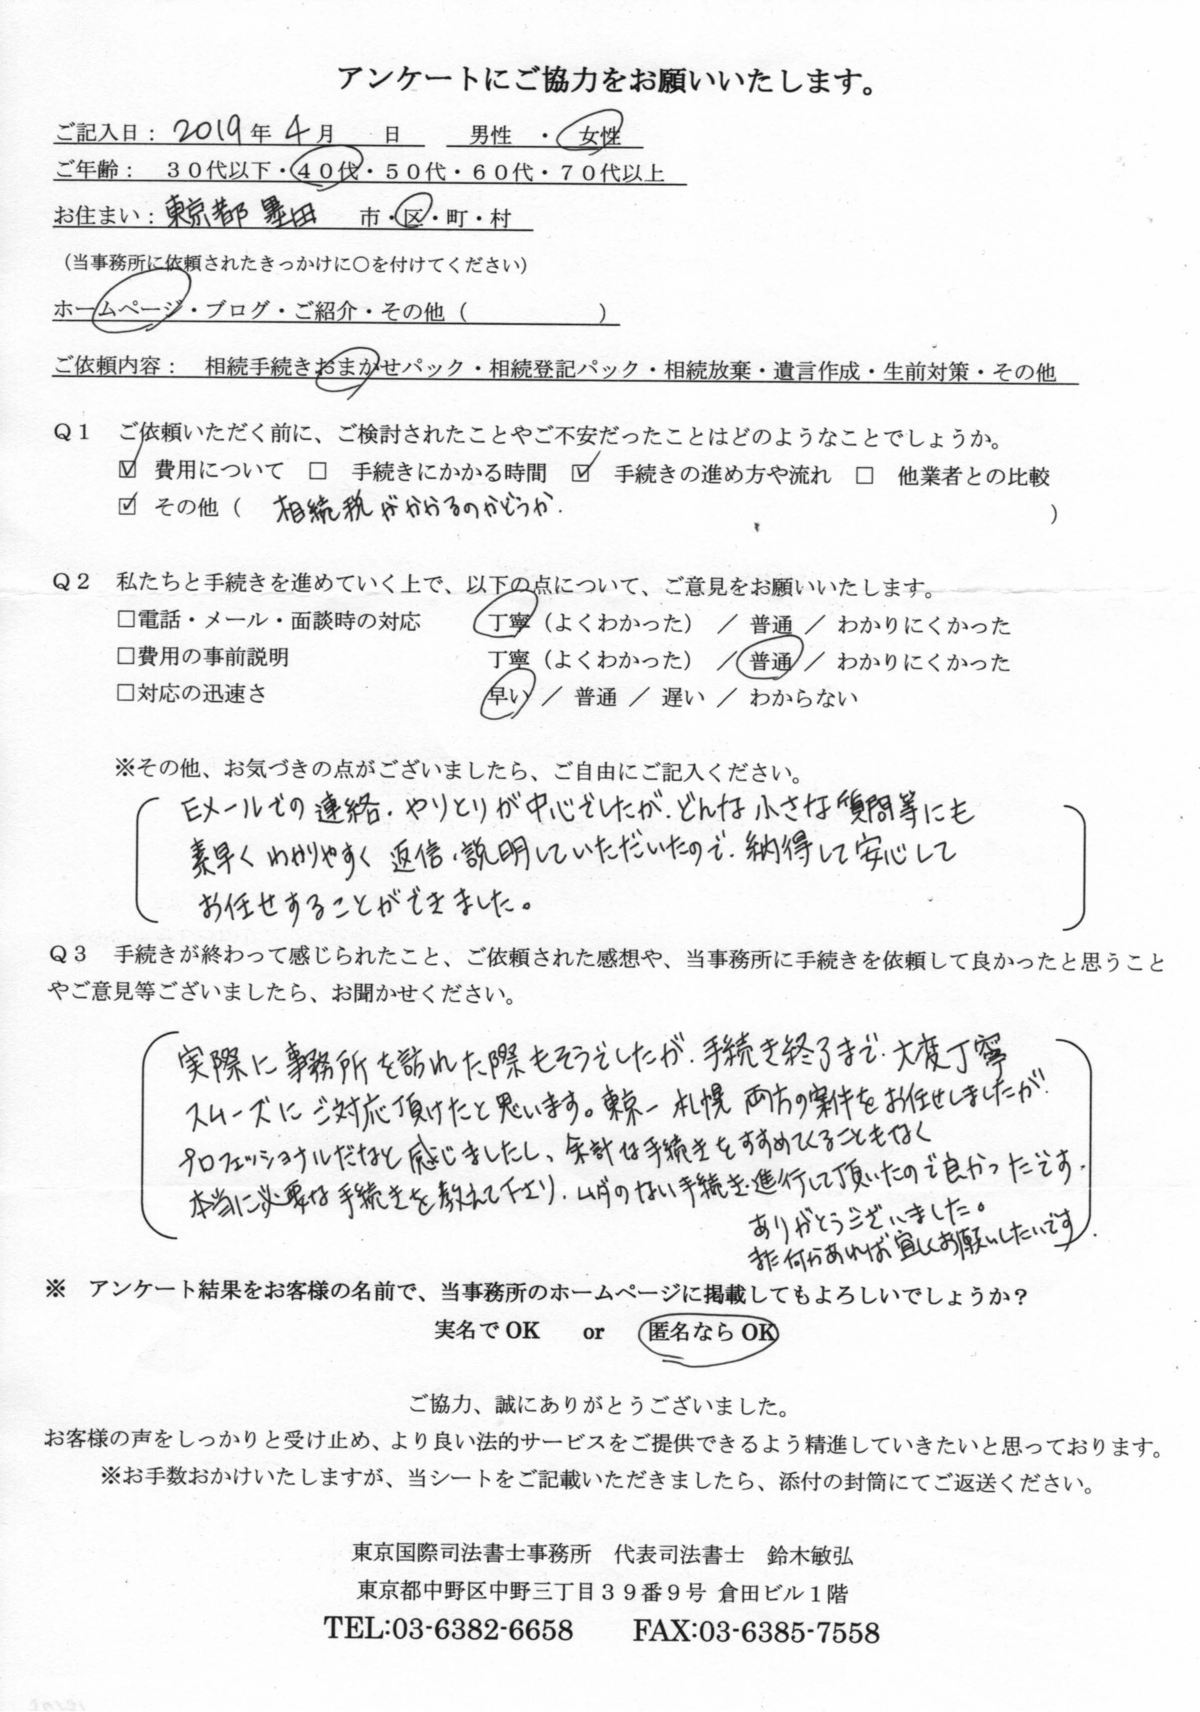 アンケートにご協力をお願いいたします。
ご記入日： 2019 年 4 月　　日　　男性　・　女性
ご年齢：　３０代以下・４０代・５０代・６０代・７０代以上
お住まい：東京都 墨田　　市・区・町・村
（当事務所に依頼されたきっかけに○を付けてください）
ホームページ・ブログ・ご紹介・その他（　　　　　　）
ご依頼内容：　相続手続きおまかせパック・相続登記パック・相続放棄・遺言作成・生前対策・その他
Ｑ１　ご依頼いただく前に、ご検討されたことやご不安だったことはどのようなことでしょうか。
☑ 費用について　□ 手続きにかかる時間　☑ 手続きの進め方や流れ　□ 他業者との比較
☑ その他（　相続税がかかるのかどうか.　）
Ｑ２　私たちと手続きを進めていく上で、以下の点について、ご意見をお願いいたします。
□電話・メール・面談時の対応　　丁寧（よくわかった）／ 普通 ／ わかりにくかった
□費用の事前説明　　丁寧（よくわかった）／ 普通 ／ わかりにくかった
□対応の迅速さ　　早い ／ 普通 ／ 遅い ／ わからない
※その他、お気づきの点がございましたら、ご自由にご記入ください。
Eメールでの連絡、やりとりが中心でしたが、どんな小さな質問等にも
素早くわかりやすく返信、説明していただいたので、納得して安心して
お任せすることができました。
Ｑ３　手続きが終わって感じられたこと、ご依頼された感想や、当事務所に手続きを依頼して良かったと思うこと
やご意見等ございましたら、お聞かせください。
実際に事務所を訪れた際もそうでしたが、手続き終了まで、大変丁寧
スムーズにご対応頂けたと思います。東京ー札幌 両方の案件をお任せしましたが、
プロフェッショナルだなと感じましたし、余計な手続きをすすめてくることもなく
本当に必要な手続きを教えて下さり、ムダのない手続き進行して頂いたので良かったです.
ありがとうございました。
また何かあれば宜しくお願いしたいです.
※　アンケート結果をお客様の名前で、当事務所のホームページに掲載してもよろしいでしょうか？
実名でOK　　or　　匿名ならOK
ご協力、誠にありがとうございました。
お客様の声をしっかりと受け止め、より良い法的サービスをご提供できるよう精進していきたいと思っております。
※お手数おかけいたしますが、当シートをご記載いただきましたら、添付の封筒にてご返送ください。
東京国際司法書士事務所　代表司法書士　鈴木敏弘
東京都中野区中野三丁目３９番９号 倉田ビル１階
TEL:03-6382-6658　　FAX:03-6385-7558